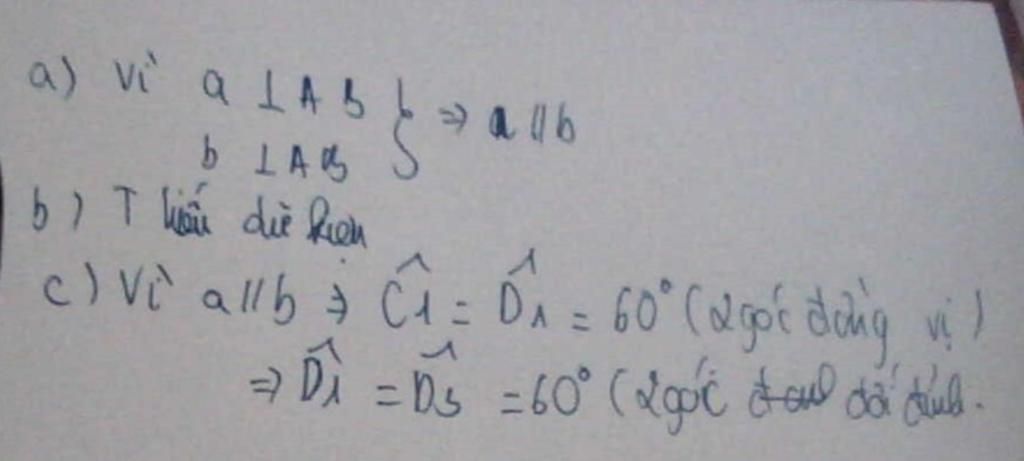 a) Vì a ⊥ AB } ⇒ a // b
b ⊥ AB
b) Thiếu dữ kiện
c) Vì a // b ⇒ Ĉ1 = D̂1 = 60° (2 góc đồng vị)
⇒ D̂1 = D̂3 = 60° (2 góc đối đỉnh.